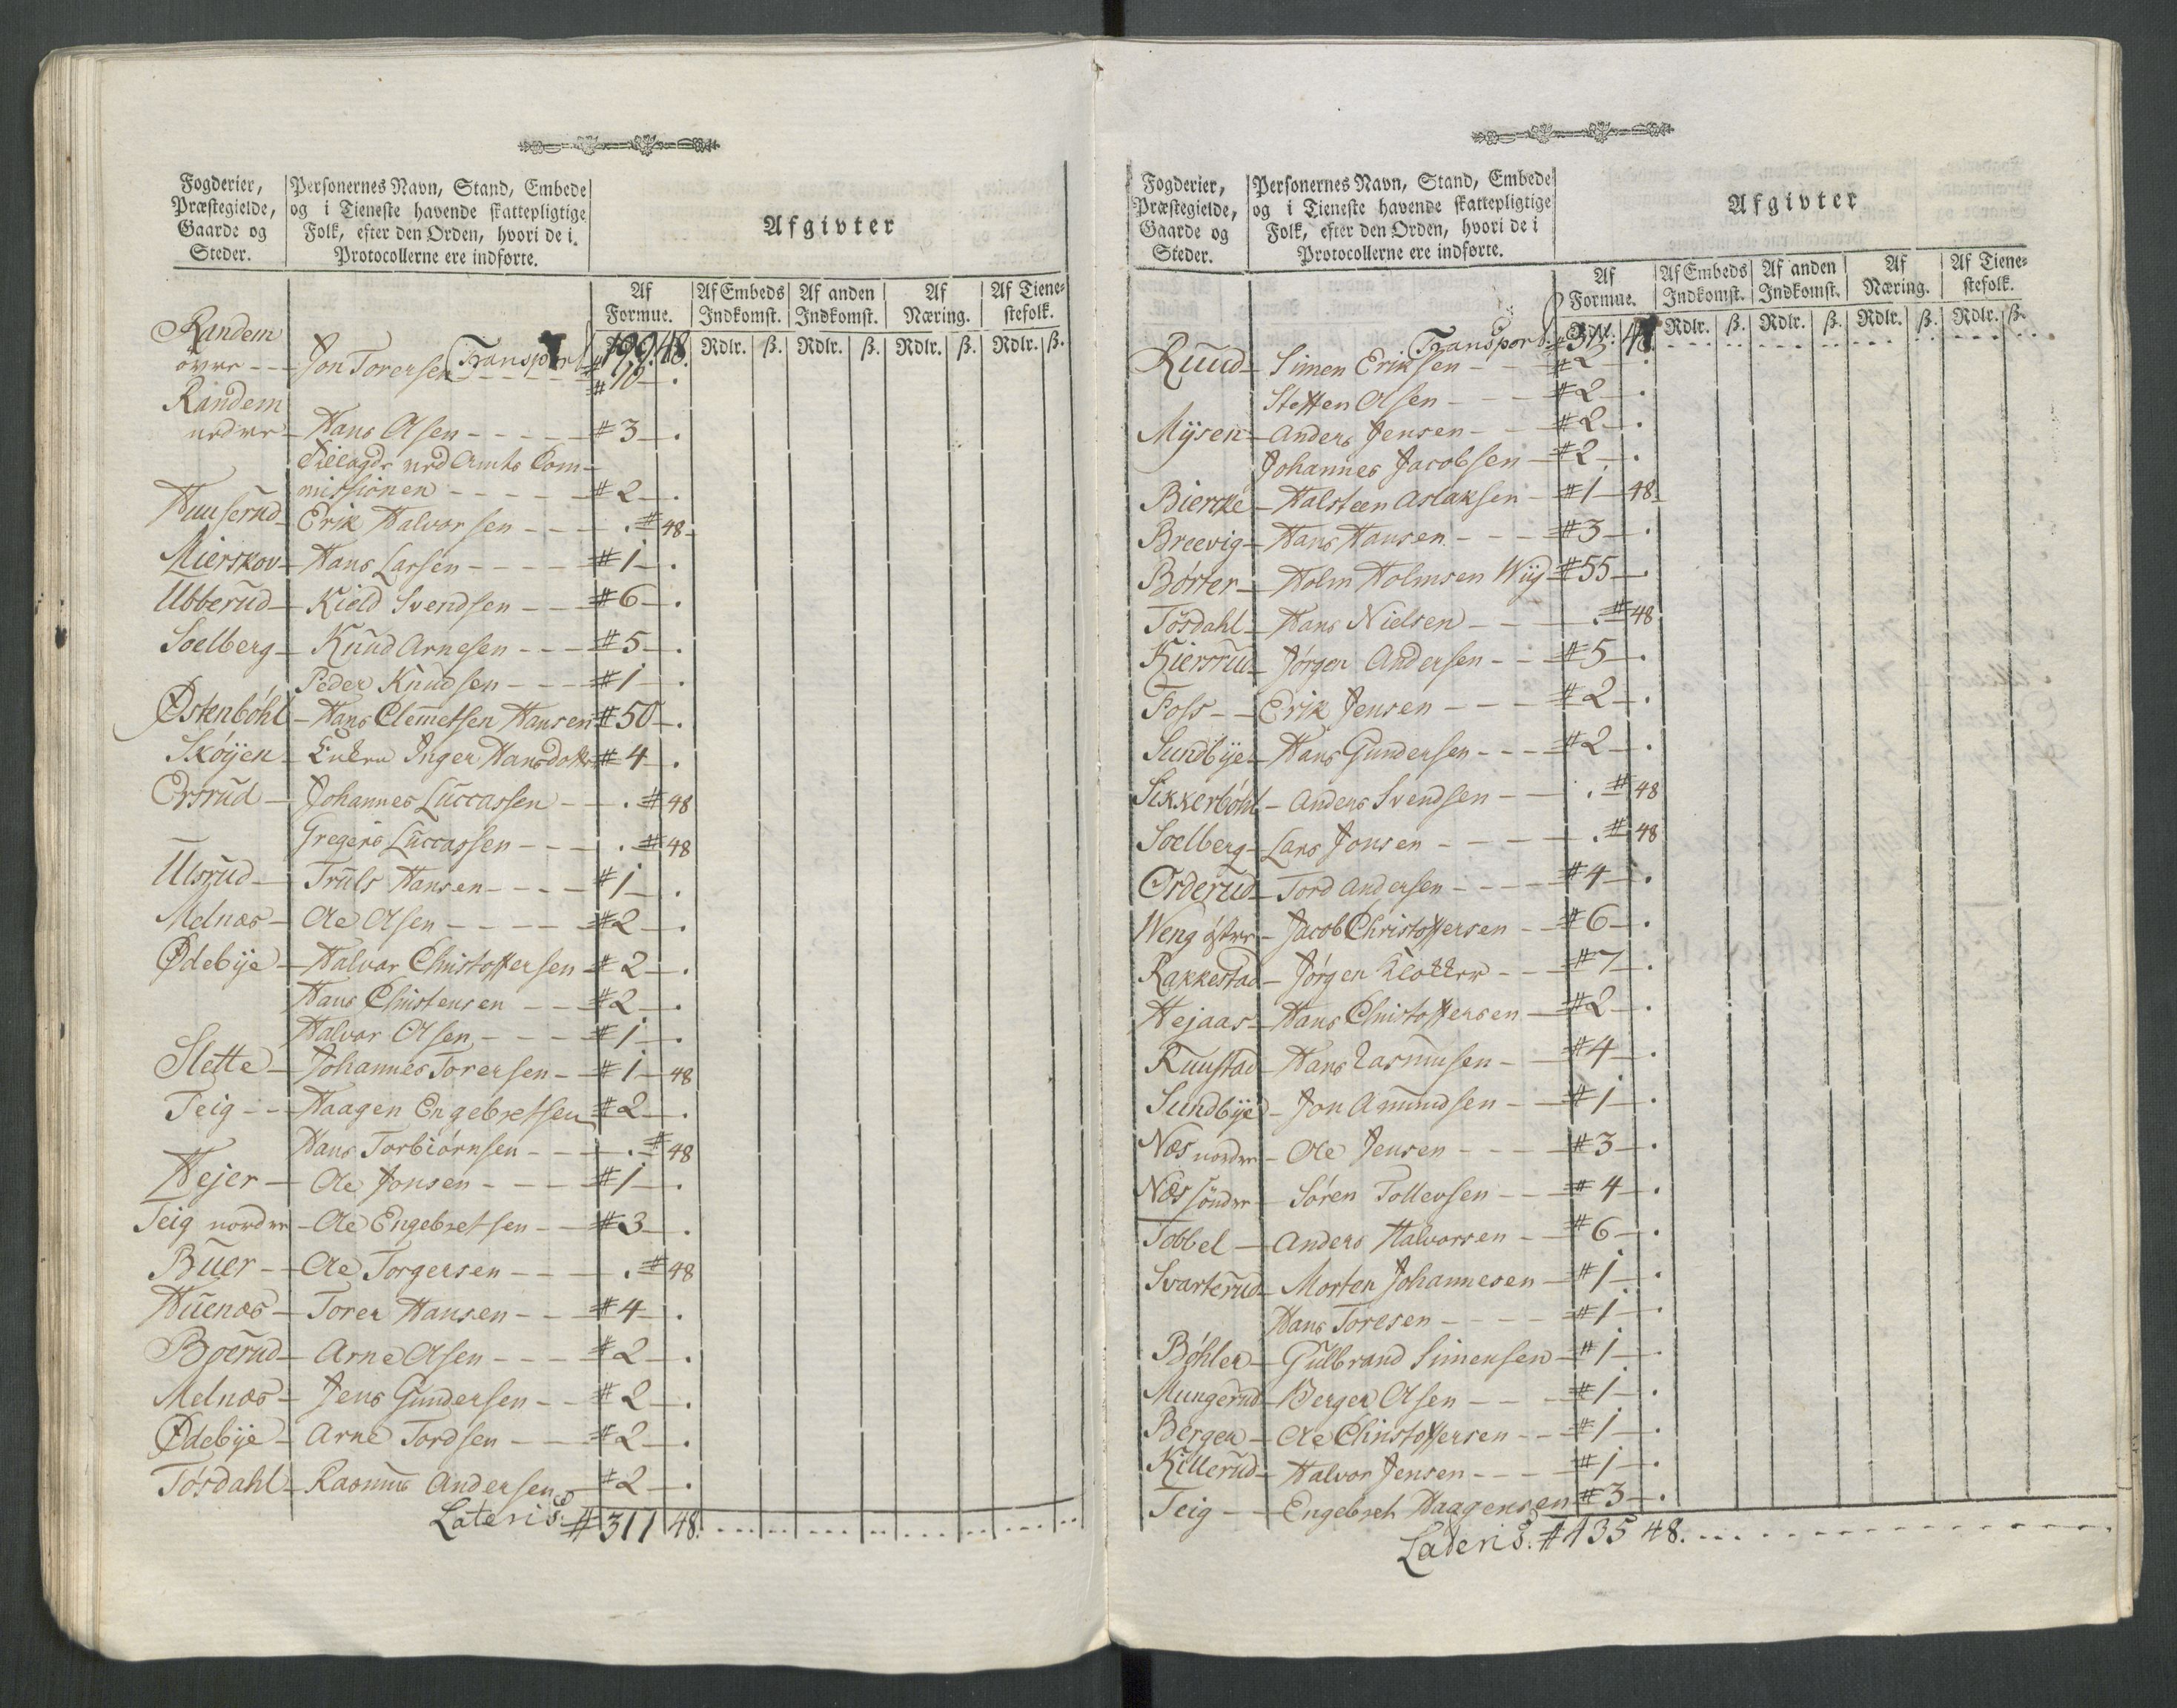 Fogderier, Præstegielde, Gaarde og Steder.
Personernes Navn, Stand, Embede og i Tieneste havende skattepligtige Folk, efter den Orden, hvori de i Protocollerne ere indførte.
Afgivter
Af Formue. Af Embeds Indkomst. Af anden Indkomst. Af Næring. Af Tienestefolk.
Rdlr. ß. Rdlr. ß. Rdlr. ß. Rdlr. ß.
Transport 199 48.
Randem øvre - - Jon Torersen - - # 10 - .
Randem nedre - Hans Olsen - - - - # 3 - .
Tillagde ved Amts Commissionen - - - - # 2 - .
Huuserud - Erik Halvorsen - - - . # 48 -
Mierskov - Hans Larsen - - - - # 1 - .
Ubberud - Kield Svendsen - - # 6 - .
Soelberg - Knud Arnesen - - - # 5 - .
Peder Knudsen - - - # 1 - .
Østenbøhl - Hans Clemetsen Hansen # 50 - .
Skøyen - Enken Inger Hansdotter # 4 - .
Ersrud - Johannes Luccassen - - . # 48
Gregers Luccassen - - - . # 48
Ulsrud - Truls Hansen - - - - # 1 - .
Melnæs - Ole Olsen - - - - # 2 - .
Ødebye - Halvor Christoffersen # 2 - .
Hans Christensen - - # 2 - .
Halvor Olsen - - - - # 1 - .
Slette - Johannes Torersen - # 1 - 48
Teig - - Haagen Engebretsen # 2 - .
Hans Torbiørnsen - - - . # 48
Hejer - Ole Jonsen - - - - # 1 - .
Teig nordre - Ole Engebretsen - - # 3 - .
Buer - - Ole Torgersen - - - . # 48
Huenæs - Torer Hansen - - - # 4 - .
Bøerud - Arne Olsen - - - # 2 - .
Melnæs - Jens Gundersen - - # 2 - .
Ødebye - Arne Tordsen - - - # 2 - .
Tøsdahl - Rasmus Andersen # 2 - .
Lateris # 311 48.
Fogderier, Præstegielde, Gaarde og Steder.
Personernes Navn, Stand, Embede og i Tieneste havende skattepligtige Folk, efter den Orden, hvori de i Protocollerne ere indførte.
Afgivter
Af Formue. Af Embeds Indkomst. Af anden Indkomst. Af Næring. Af Tienestefolk.
Rdlr. ß. Rdlr. ß. Rdlr. ß. Rdlr. ß.
Transport # 311. 48.
Ruud - Simen Eriksen - - # 2 - .
Steffen Olsen - - - # 2 - .
Mysen - Anders Jensen - - # 2 - .
Johannes Jacobsen - # 2 - .
Biercke - Halsteen Aslaksen - # 1 - 48.
Breevig - Hans Hansen - - - # 3 - .
Børter - Holm Holmsen Wiy # 55 - .
Tøsdahl - Hans Nielsen - - - . # 48.
Kiersrud - Jørgen Andersen - - # 5 - .
Foss - - Erik Jensen - - - # 2 - .
Sundbye - Hans Gundersen - - - # 2 - .
Sikkerbøhl - Anders Svendsen - - . # 48
Soelberg - Lars Jonsen - - - - . # 48
Orderud - Tord Andersen - - - - # 4 - .
Weng østre - Jacob Christoffersen - # 6 - .
Rakkestad - Jørgen Klokker - - # 7 - .
Hejaas - Hans Christoffersen - # 2 - .
Ruustad - Hans Rasmusen - # 4 - .
Sundbye - Jon Amundsen - - # 1 - .
Næs nordre - Ole Jensen - - - # 3 - .
Næs søndre - Søren Tollevsen - - # 4 - .
Tobbel - Anders Halvorsen - # 6 - .
Svarterud - Morten Johannesen - # 1 - .
Hans Toresen - - - - # 1 - .
Bøhler - Gulbrand Simensen - # 1 - .
Mungerud - Berger Olsen - - - # 1 - .
Bergen - Ole Christoffersen - - # 1 - .
Killerud - Halvor Jensen - - - - # 1 - .
Teig - - Engebret Haagensen # 3 - .
Lateris. # 435 48.